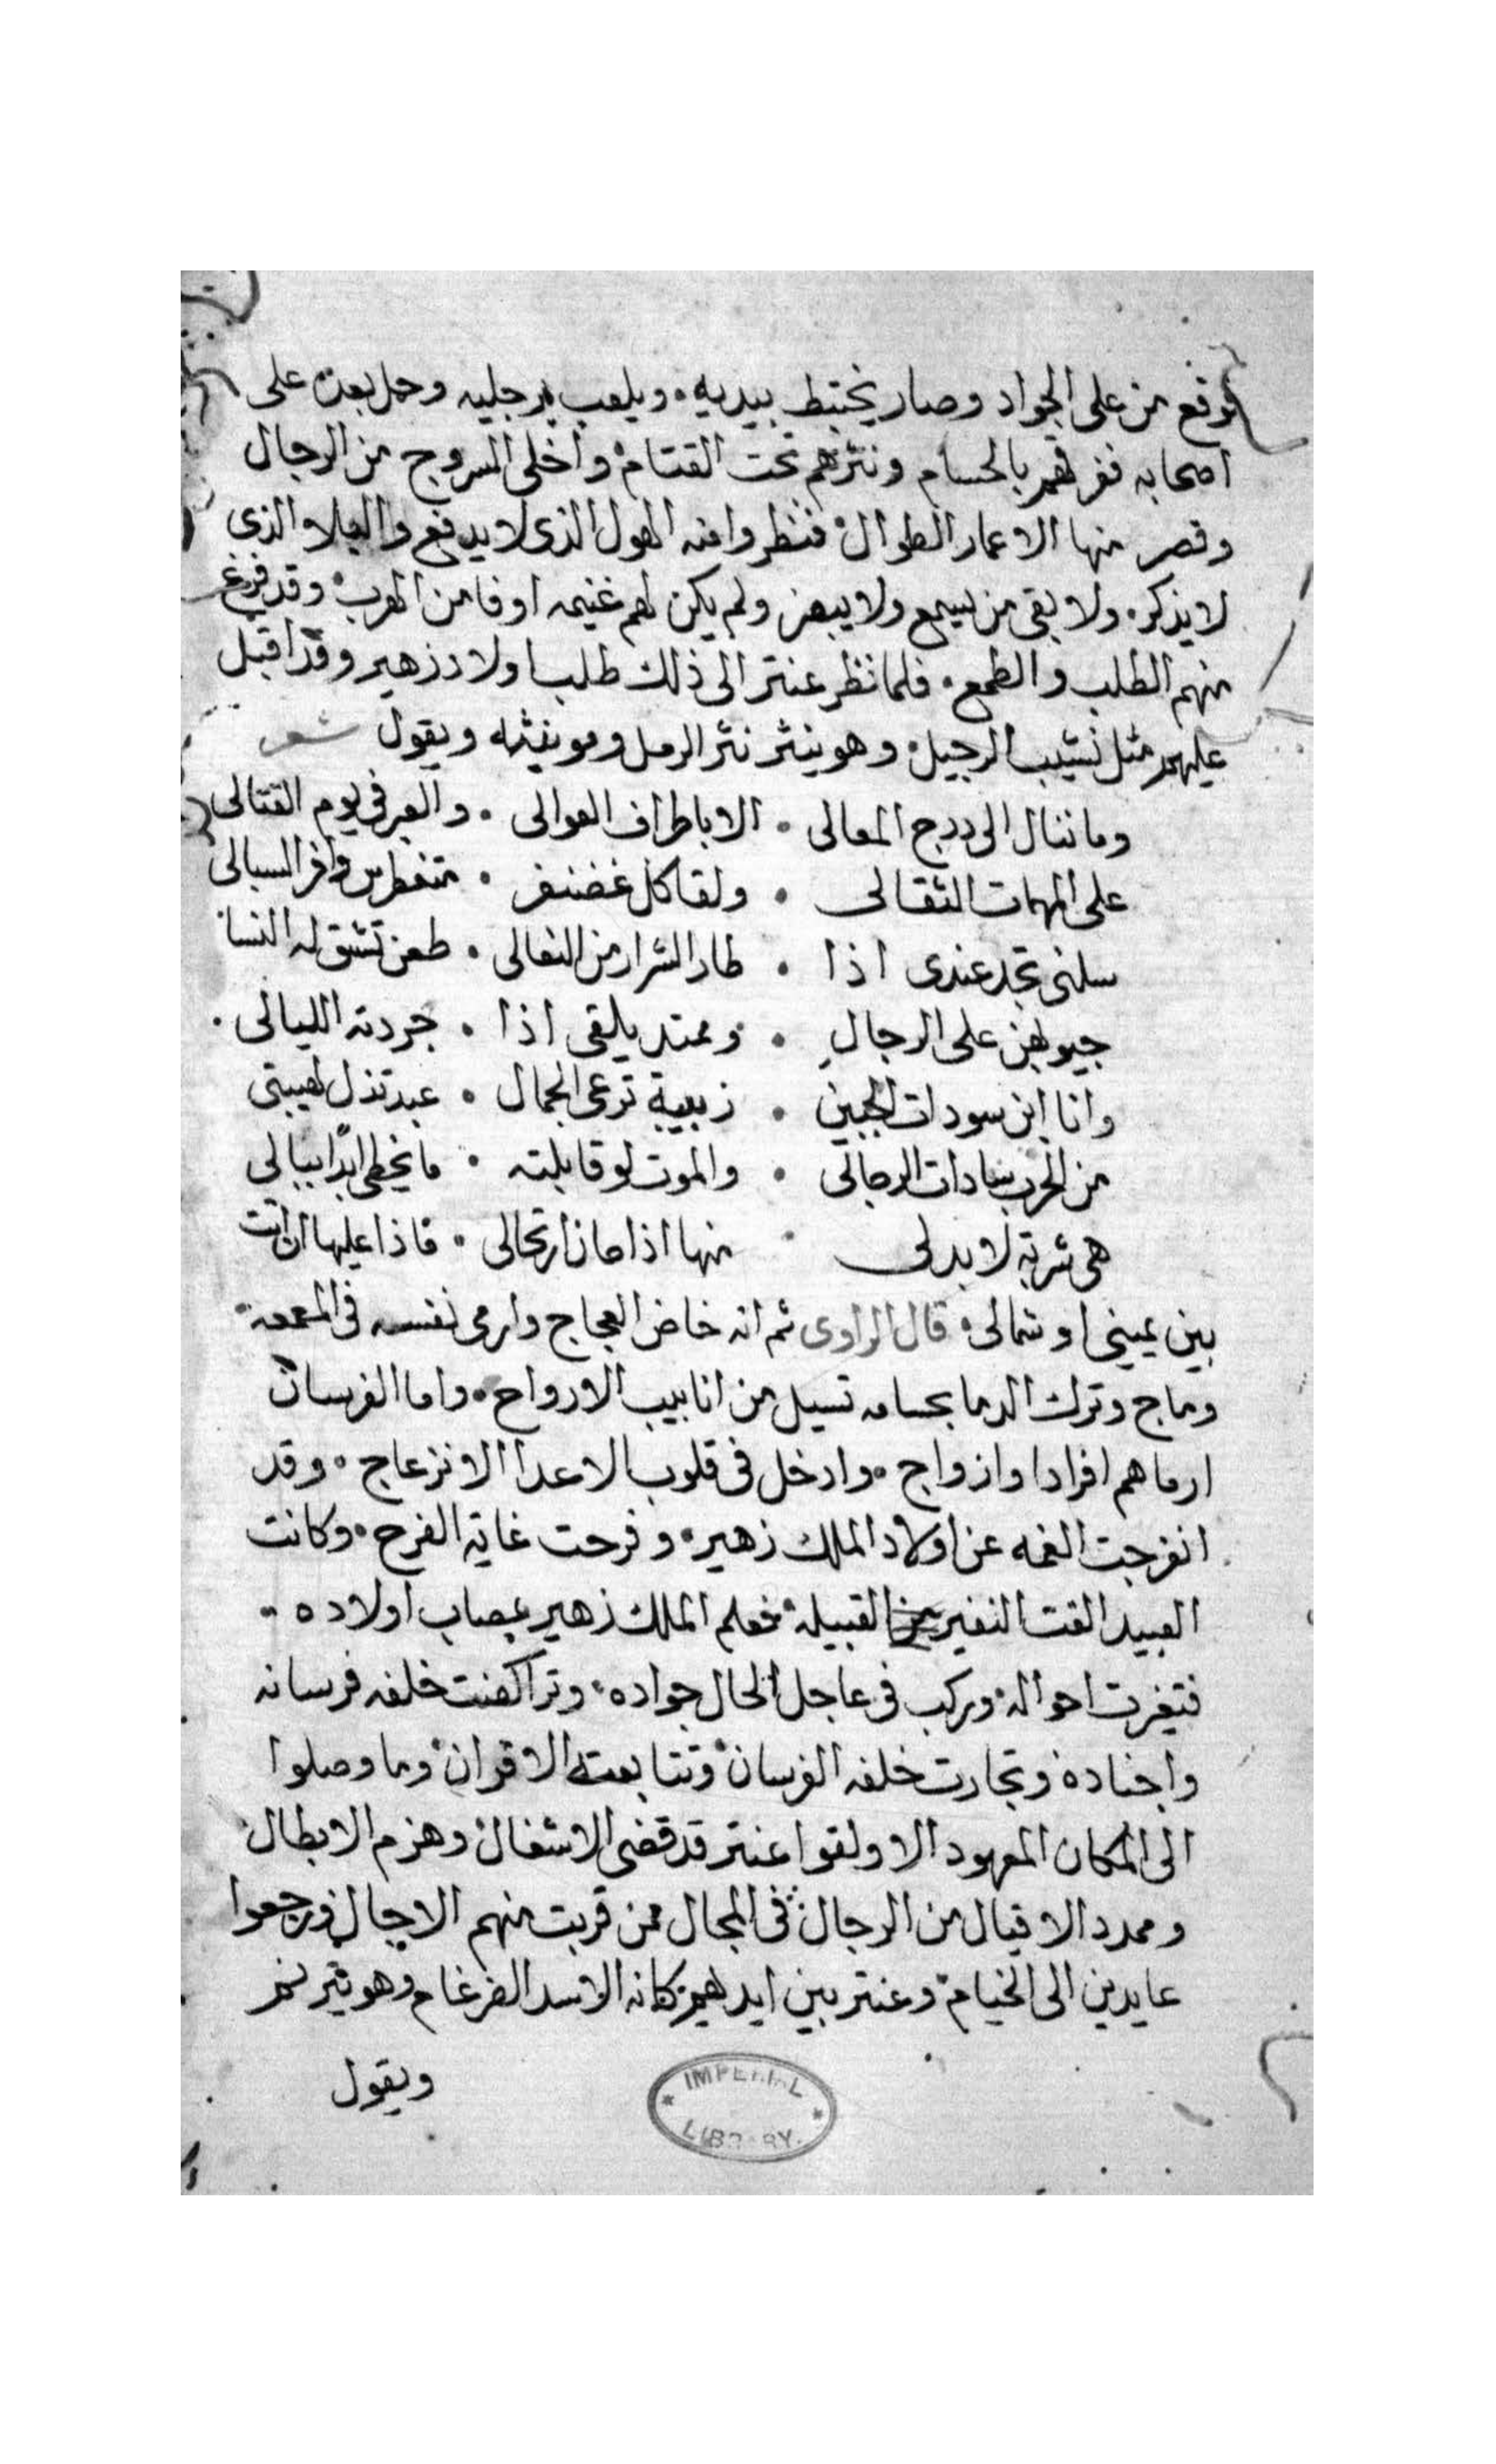 فوقع من على الجواد وصار يختبط بيديه ٠ ويلعب برجليه وحمل بعده على
اصحابه ففرقهم بالحسام ونثرهم تحت القتام ٠ واخلى السروج من الرجال
وقصر منها الاعمار الطوال ٠ فنظروا منه الهول الذى لا يدفع والبلاو الذى
لا يذكر ٠ ولا بقى من يسمع ولا يبصر ولم يكن لهم غنيمه اوفا من الهرب ٠ وقد فرغ
منهم الطلب والطمع ٠ فلما نظر عنتر الى ذلك طلب اولاد زهير وقد اقبل
عليهم مثل نشيب الرجيل ٠ وهو ينثر نثر الرمل ويقول شعر
وما ننال الى درج المعالى ٠ الا باطراف العوالى ٠ والصبر فى يوم القتالى
على المهمات الثقالى ٠ ولقا كل غضنفر ٠ متغطرس وافر السبالى
سلنى تجد عندى اذا ٠ طار الشرار من النعالى ٠ طعن تشق له النسا
جيوبهن على الرجال ٠ ومهند يلقى اذا ٠ جردته الليالى ٠
وانا ابن سودات الجبين ٠ زبيبة ترعى الجمال ٠ عبد تذل لهيبتى
من الحرب سادات الرجالى ٠ والموت لو قابلته ٠ ما يخطى ابدا ببالى
هى شربة لا بد لى ٠ منها اذا حان ارتحالى ٠ فاذا عليها ان اتت
بين يمينى او شمالى ٠ قال الراوى ثم انه خاض العجاج وارمى نفسه فى المعمعة
وماج وترك الدما بحسامه تسيل من انابيب الارواح ٠ واما الفرسان
ارماهم افرادا وازواج ٠ وادخل فى قلوب الاعدا الانزعاج ٠ وقد
انفرجت الغمه عن اولاد الملك زهير ٠ وفرحت غاية الفرح ٠ وكانت
العبيد القت النفير القبيلة ٠ فعلم الملك زهير بمصاب اولاده ٠
فتغيرت احواله ٠ وركب فى عاجل الحال جواده ٠ وتراكضت خلفه فرسانه
واجناده وتجارت خلفه الفرسان ٠ وتتابعت الاقران ٠ وما وصلوا
الى المكان المعهود الا ولقوا عنتر قد قضى الاشغال ٠ وهزم الابطال
ومدد الاقيال من الرجال ٠ فى المجال ممن قربت منهم الاجال ٠ فرجعوا
عايدين الى الخيام ٠ وعنتر بين ايديهم كانه الاسد الضرغام وهو يترنم
ويقول
IMPERIAL
LIBRARY